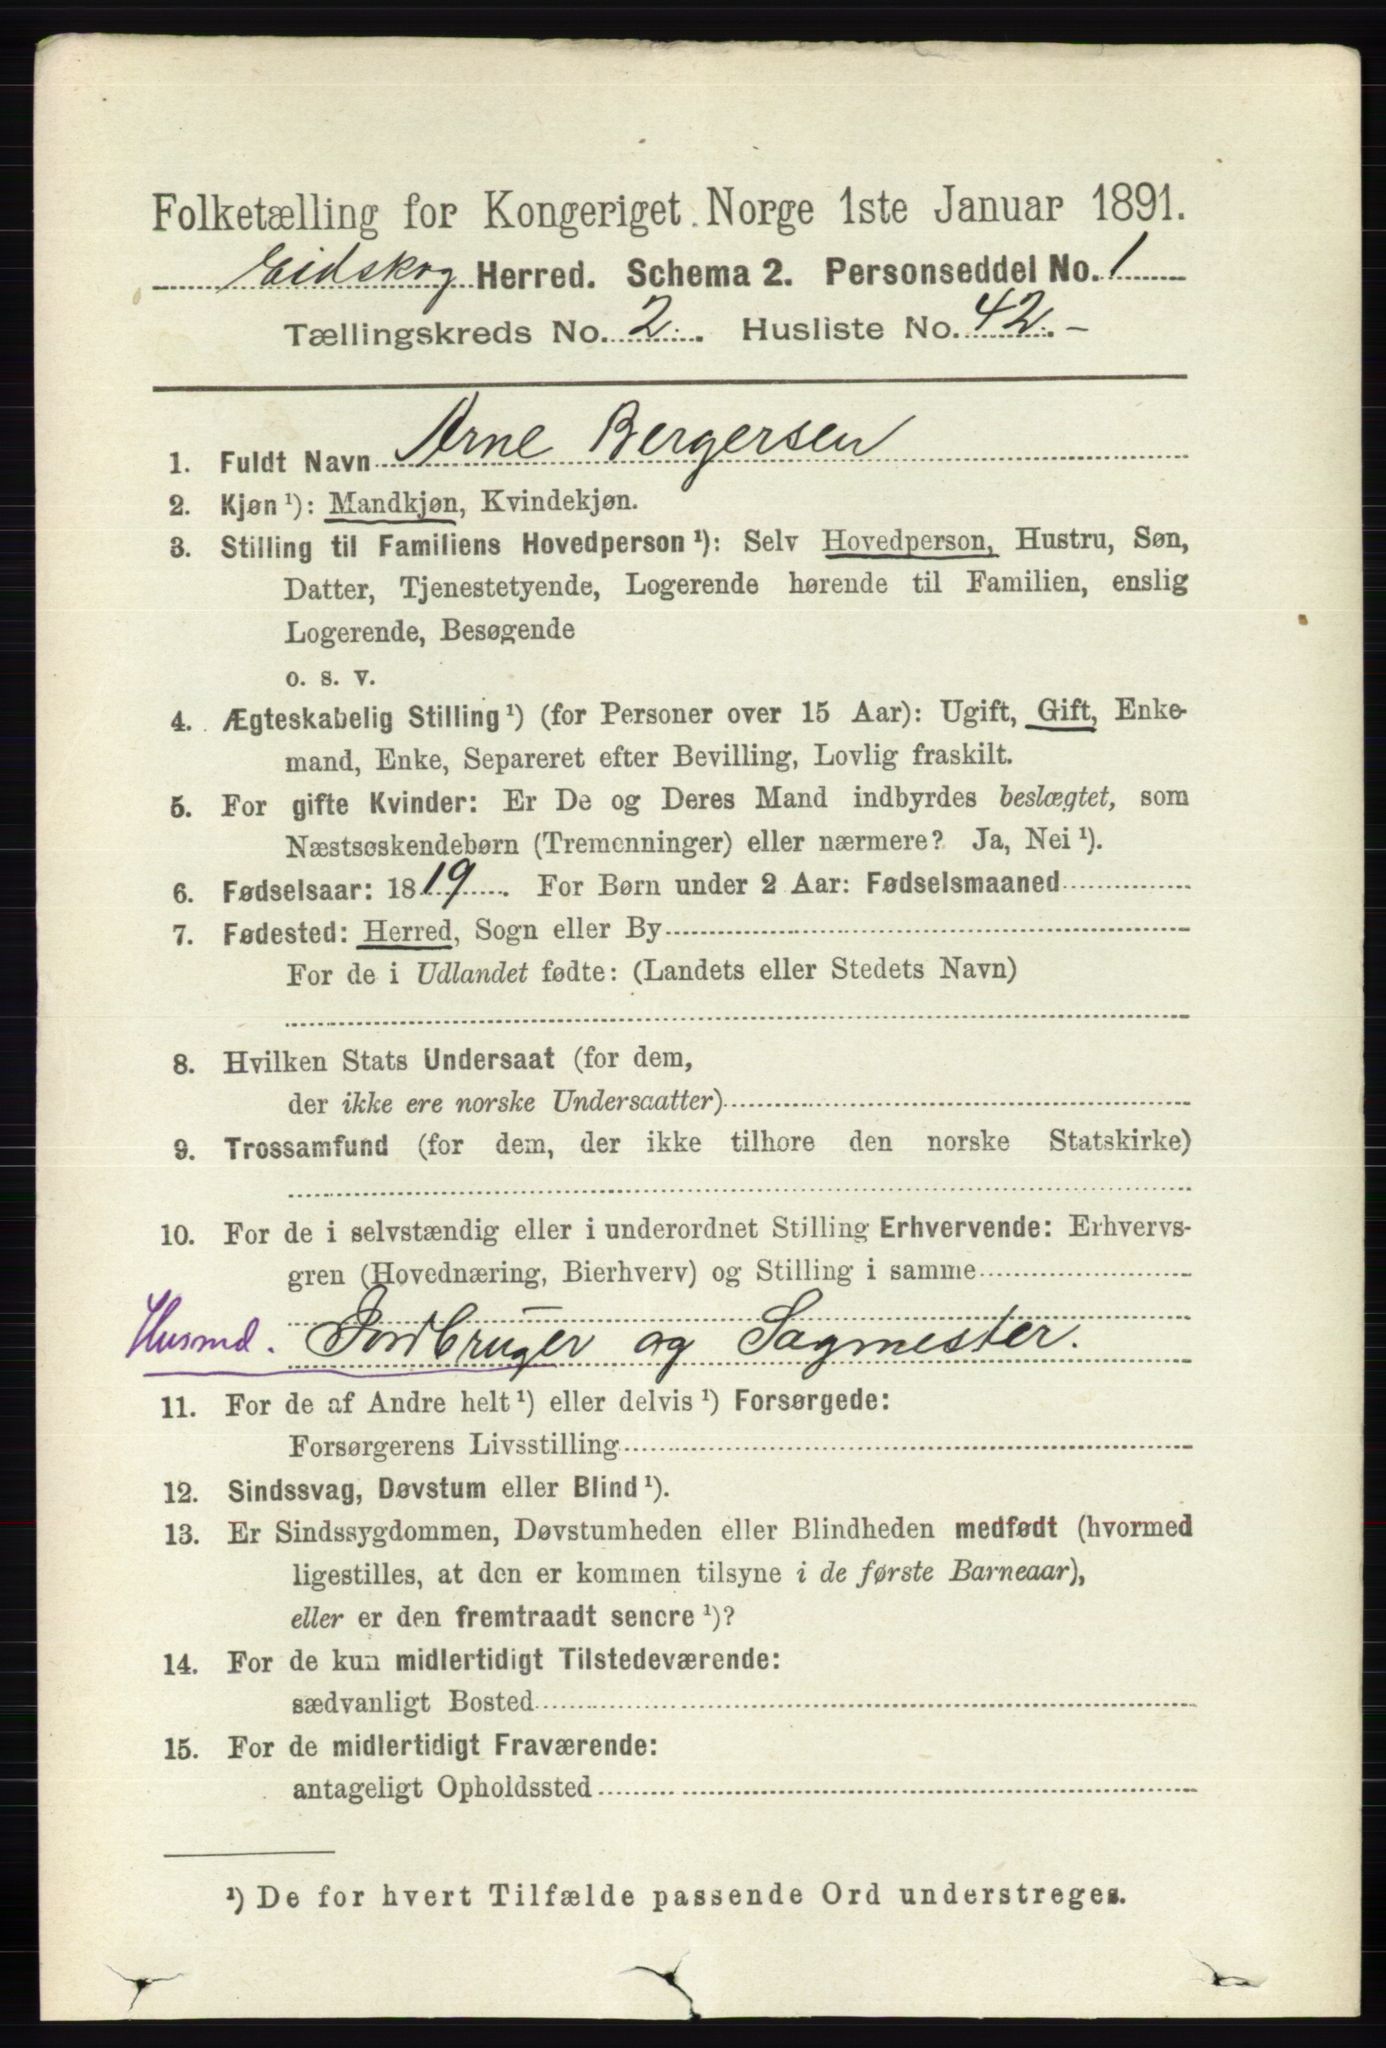 Folketælling for Kongeriget Norge 1ste Januar 1891.
Eidskog Herred. Schema 2. Personseddel No. 1
Tællingskreds No. 2. Husliste No. 42.-
1. Fuldt Navn Arne Bergersen
2. Kjøn ¹): Mandkjøn, Kvindekjøn.
3. Stilling til Familiens Hovedperson ¹): Selv Hovedperson, Hustru, Søn,
Datter, Tjenestetyende, Logerende hørende til Familien, enslig
Logerende, Besøgende
o. s. v.
4. Ægteskabelig Stilling ¹) (for Personer over 15 Aar): Ugift, Gift, Enke-
mand, Enke, Separeret efter Bevilling, Lovlig fraskilt.
5. For gifte Kvinder: Er De og Deres Mand indbyrdes beslægtet, som
Næstsøskendebørn (Tremenninger) eller nærmere? Ja, Nei ¹).
6. Fødselsaar: 1819. For Børn under 2 Aar: Fødselsmaaned
7. Fødested: Herred, Sogn eller By
For de i Udlandet fødte: (Landets eller Stedets Navn)
8. Hvilken Stats Undersaat (for dem,
der ikke ere norske Undersaatter)
9. Trossamfund (for dem, der ikke tilhore den norske Statskirke)
10. For de i selvstændig eller i underordnet Stilling Erhvervende: Erhvervs-
gren (Hovednæring, Bierhverv) og Stilling i samme
Husmd. Jordbruger og Sagmester.
11. For de af Andre helt ¹) eller delvis ¹) Forsørgede:
Forsørgerens Livsstilling
12. Sindssvag, Døvstum eller Blind ¹).
13. Er Sindssygdommen, Døvstumheden eller Blindheden medfødt (hvormed
ligestilles, at den er kommen tilsyne i de første Barneaar),
eller er den fremtraadt senere ¹)?
14. For de kun midlertidigt Tilstedeværende:
sædvanligt Bosted
15. For de midlertidigt Fraværende:
antageligt Opholdssted
¹) De for hvert Tilfælde passende Ord understreges.